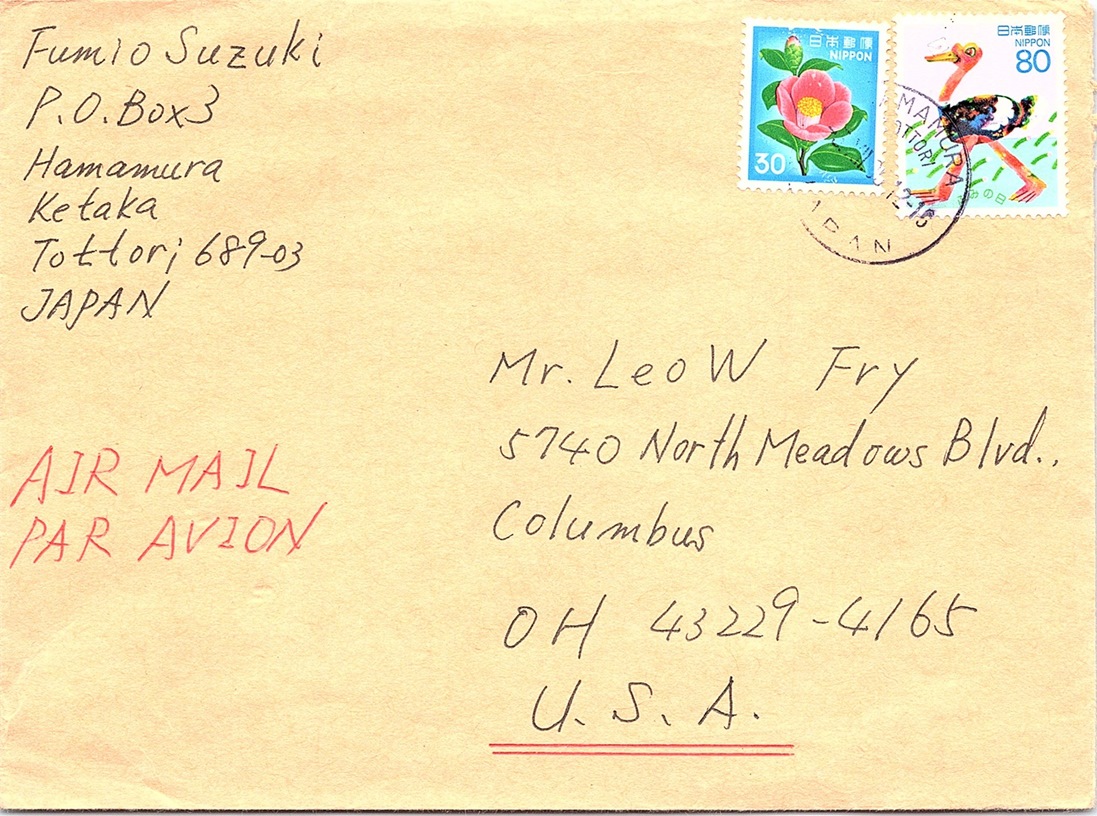 Fumio Suzuki
P.O.Box3
Hamamura
Ketaka
Tottori 689-03
JAPAN
日本郵便
NIPPON
30
日本郵便
NIPPON
80
の日
MAMURA
OTTORI
12-18
PAN
Mr. Leo W Fry
5740 North Meadows Blvd.,
Columbus
OH 43229-4165
U.S.A.
AIR MAIL
PAR AVION